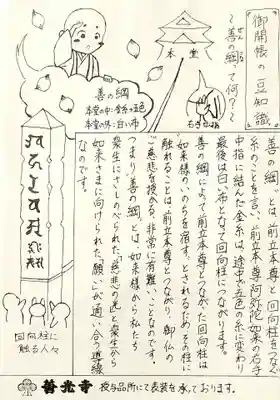 御開帳の豆知識
～善の綱って何？～
本堂
善の綱
本堂の中：金糸→五色
本堂の外：白い布
善の綱とは、前立本尊と回向柱をつなぐ
糸のことを言い、前立本尊阿弥陀如来の右手
中指に結んだ金糸は、途中で五色の糸に変わり
最後は白い布となって、回向柱につながります。
善の綱によって前立本尊とつながった回向柱は
如来様のいのちを宿す、とされるため、その柱に
触れることは、前立本尊とつながり、御仏の
ご慈悲を授かる、非常に有難いことなのです。
つまり「善の綱」とは、如来様から私たち
衆生にさしのべられた「慈悲」の気と衆生から
如来さまに向けられた「願い」が通い合う道縁
なのです。
回向柱に
触る人々
善光寺
授与品所にて表装を承っております。